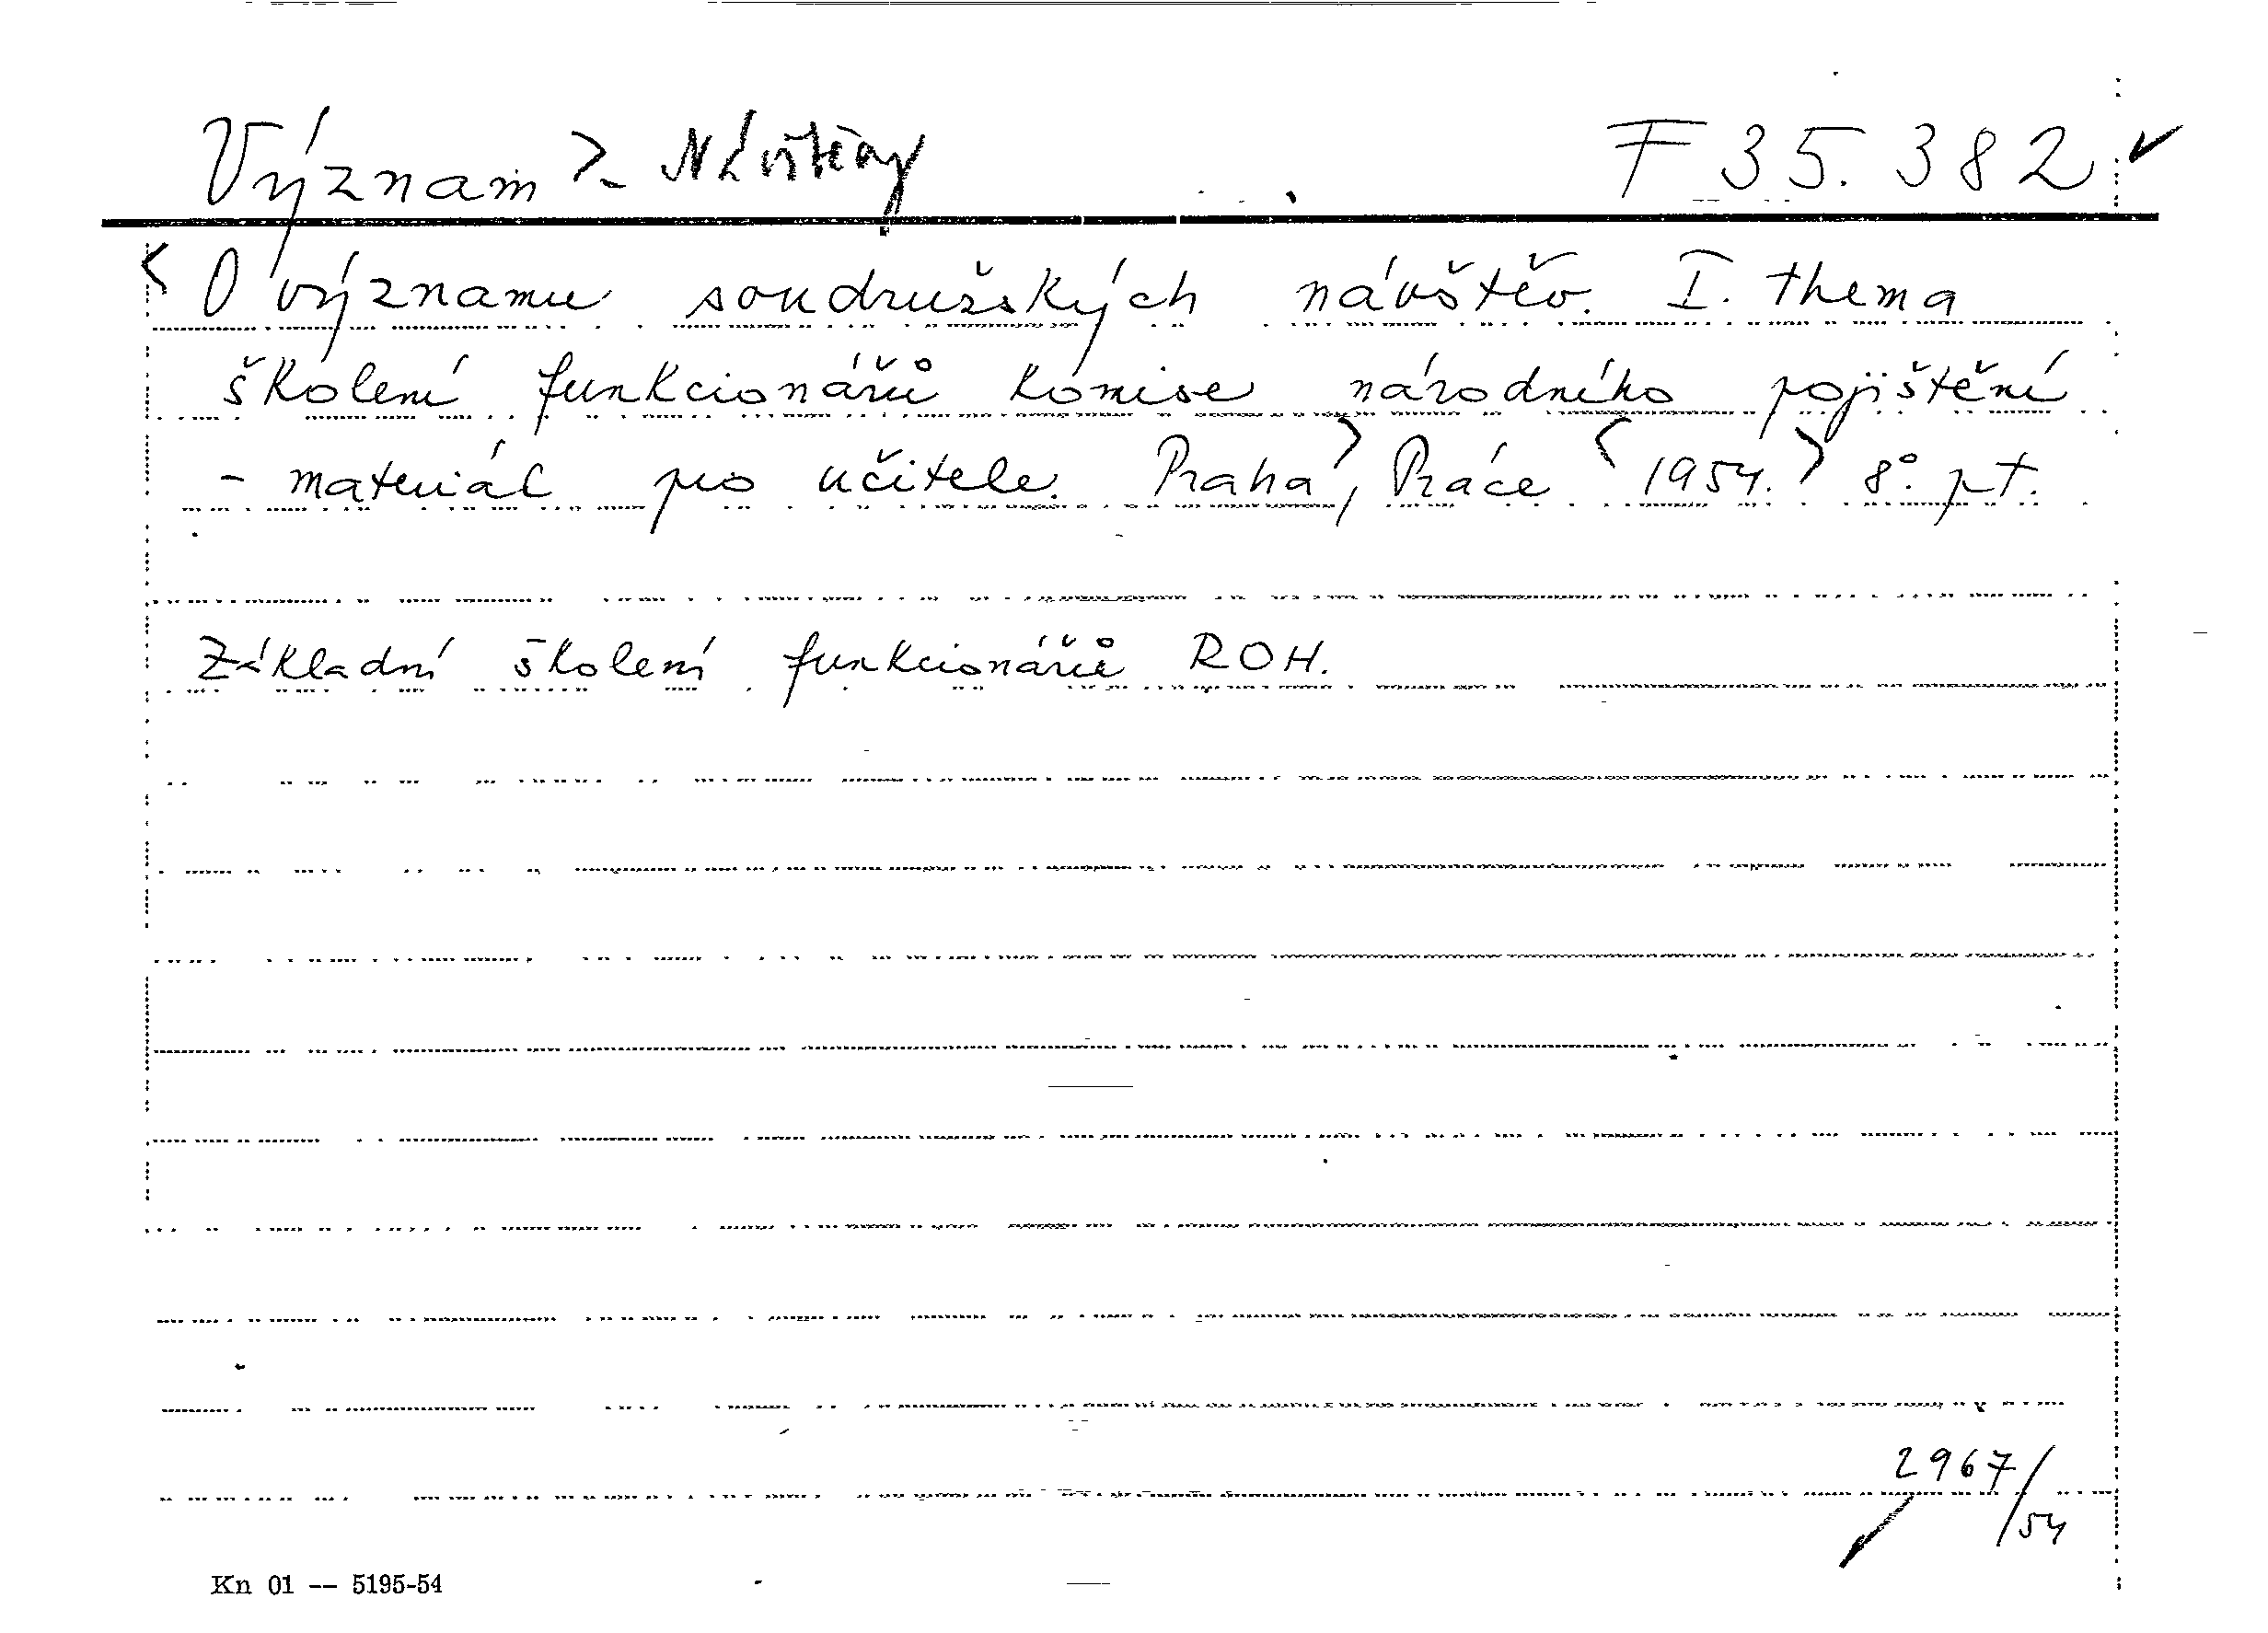 Význam >- Návštěvy F 35.382 ✓
<O významu soudružských návštěv. I. thema
školení funkcionářů komise národního pojištění
- materiál pro učitele. Praha>, Práce <1954.> 8°. pt.
Základní školení funkcionářů ROH.
2967/54
Kn 01 -- 5195-54